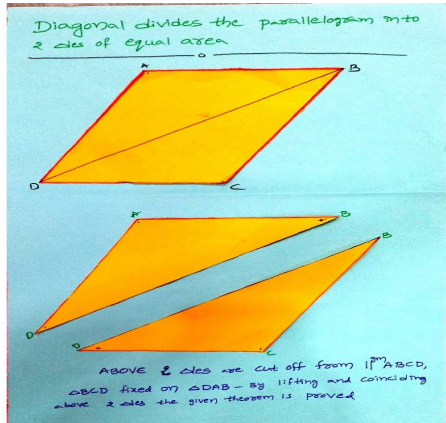 Diagonal divides the parallelogram into
2 △les of equal area
A
B
D
C
A
B
B
D
D
C
ABOVE 2 △les are cut off from ||gm ABCD,
△BCD fixed on △DAB - By lifting and coinciding
above 2 △les the given theorem is proved